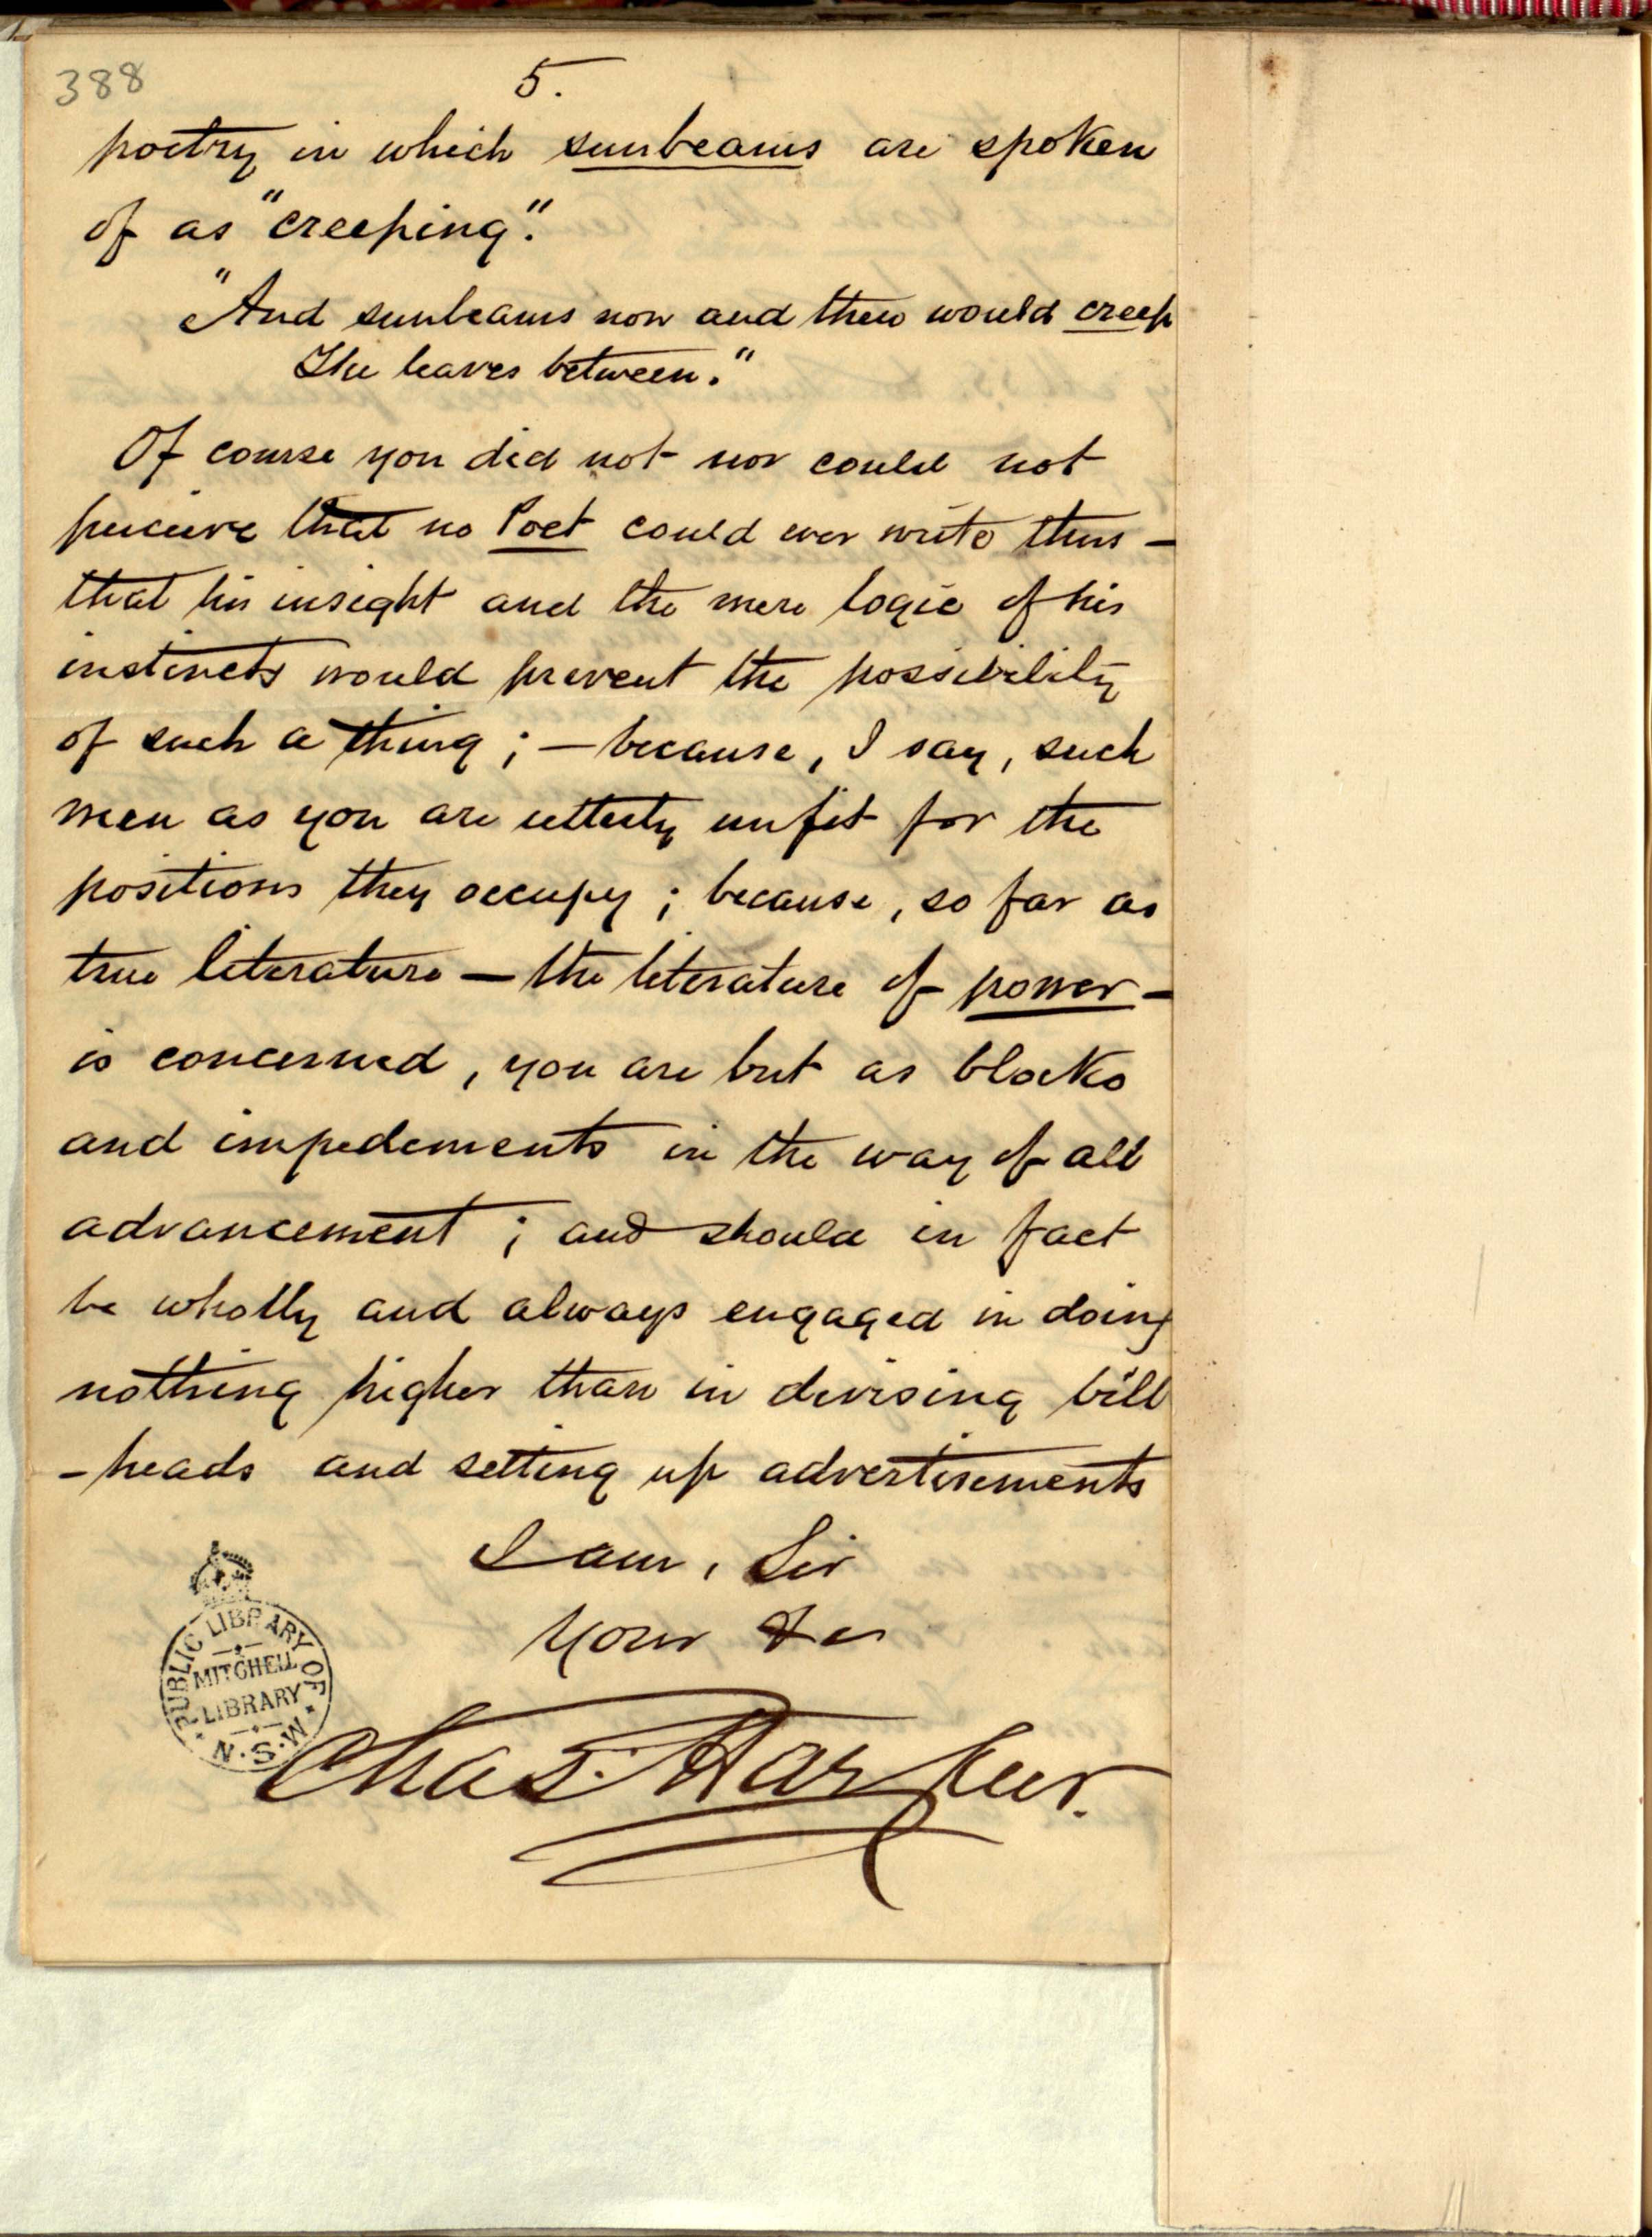 388
5.
poetry in which sunbeams are spoken
of as "creeping".
"And sunbeams now and then would creep
The leaves between."
Of course you did not nor could not
perceive that no Poet could ever write thus —
that his insight and the mere logic of his
instincts would prevent the possibility
of such a thing ; — because, I say, such
men as you are utterly unfit for the
positions they occupy ; because, so far as
true literature — the literature of power —
is concerned, you are but as blocks
and impediments in the way of all
advancement ; and should in fact
be wholly and always engaged in doing
nothing higher than in devising bill
-heads and setting up advertisements
I am, Sir
Your &c
Chas. Harpur.
PUBLIC LIBRARY OF
MITCHELL
LIBRARY
N.S.W